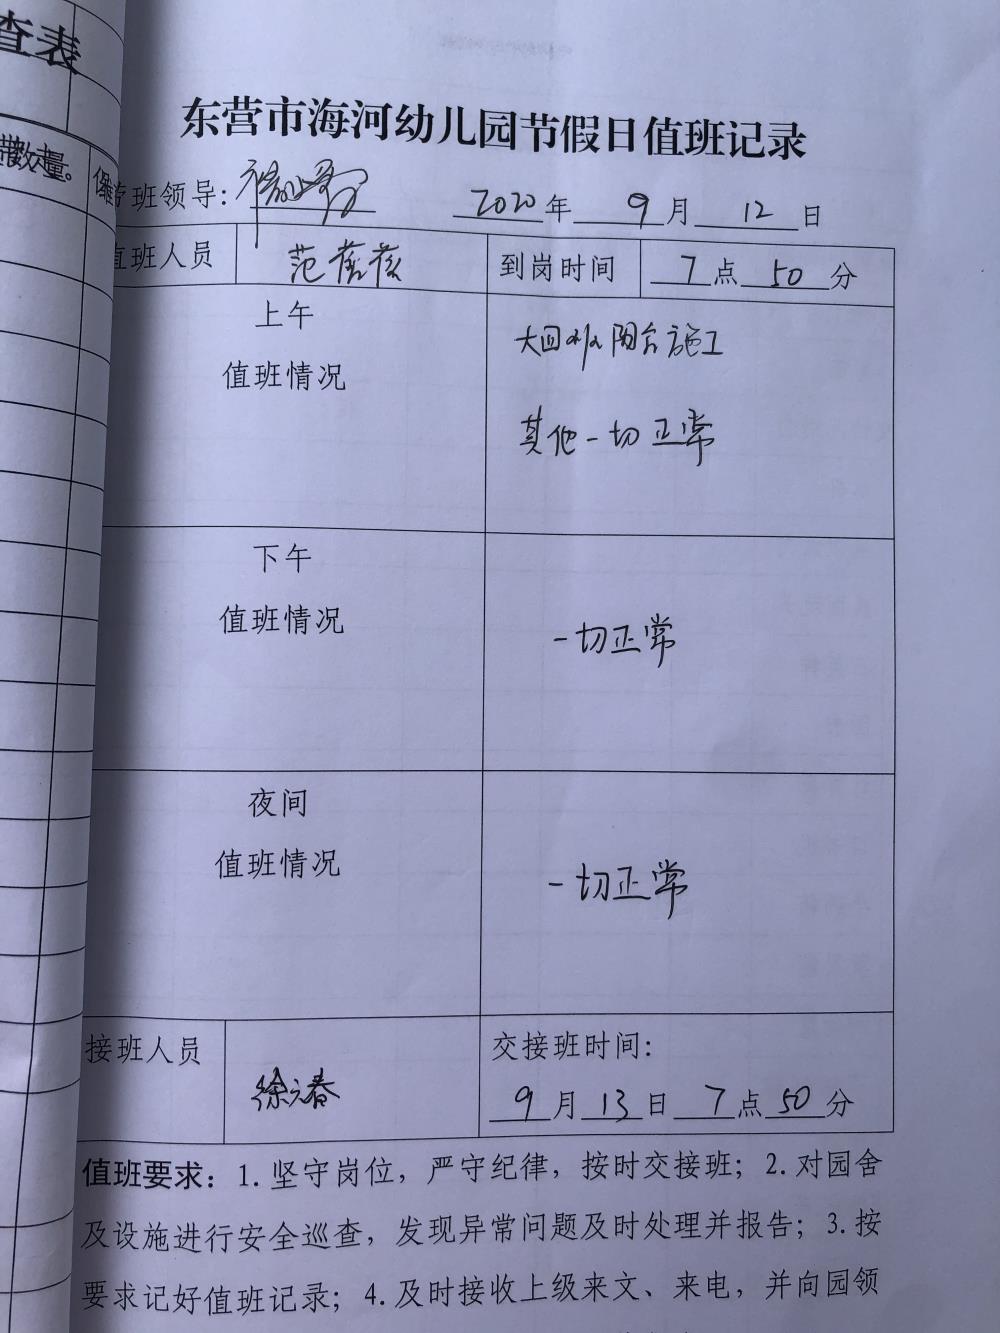 查表
带数定量。
保
东营市海河幼儿园节假日值班记录
带班领导: 2020年 9月 12日
值班人员 范蓓蓓 到岗时间 7点 50分
上午
值班情况
大四班阳台施工
其他一切正常
下午
值班情况
一切正常
夜间
值班情况
一切正常
接班人员 徐元春 交接班时间:
9月 13日 7点 50分
值班要求: 1. 坚守岗位, 严守纪律, 按时交接班; 2. 对园舍
及设施进行安全巡查, 发现异常问题及时处理并报告; 3. 按
要求记好值班记录; 4. 及时接收上级来文、来电, 并向园领